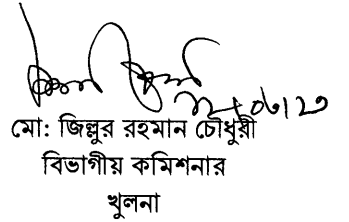 মো: জিল্লুর রহমান চৌধুরী
বিভাগীয় কমিশনার
খুলনা